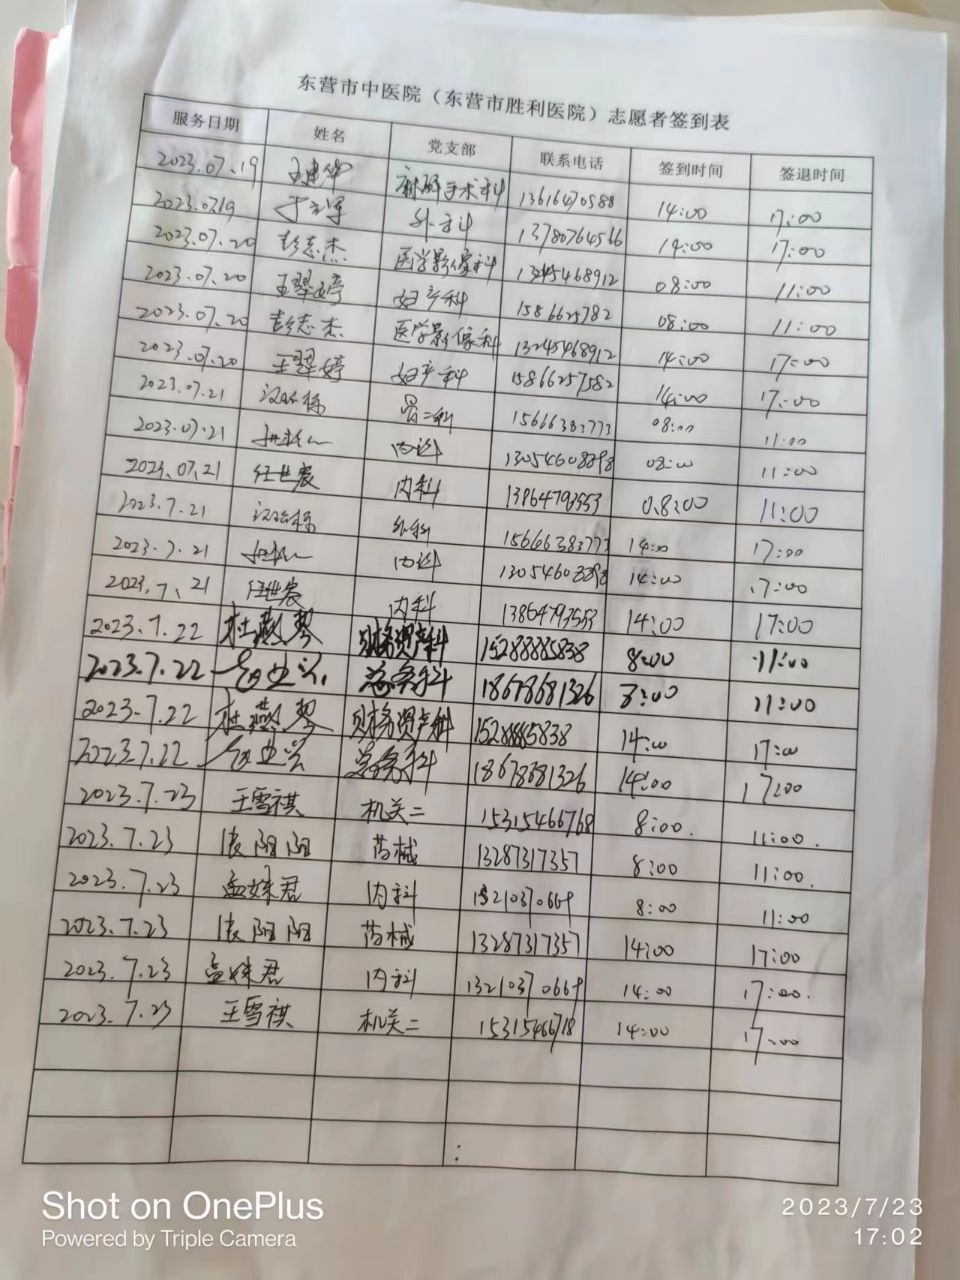 东营市中医院（东营市胜利医院）志愿者签到表
服务日期 姓名 党支部 联系电话 签到时间 签退时间
2023.07.19 王建华 麻醉手术科 13616470588 14:00 17:00
2023.0719 外科 13780764566 14:00 17:00
2023.07.20 彭志杰 医学影像科 13245468912 08:00 11:00
2023.07.20 王翠婷 妇产科 1586625782 08:00 11:00
2023.07.20 彭志杰 医学影像科 13245468912 14:00 17:00
2023.07.20 王翠婷 妇产科 15866257582 14:00 17:00
2023.07.21 15666383773 08:00 11:00
2023.07.21 内科 13054608898 08:00 11:00
2023.07.21 任世宸 内科 13864793553 0.8:00 11:00
2023.7.21 外科 15666383773 14:00 17:00
2023.7.21 内科 13054608898 14:00 17:00
2023.7.21 任世宸 内科 13864793553 14:00 17:00
2023.7.22 杜燕琴 财务资产科 15288885838 8:00 11:00
2023.7.22 总务科 18678681326 8:00 11:00
2023.7.22 杜燕琴 财务资产科 15288885838 14:00 17:00
2023.7.22 总务科 18678681326 14:00 17:00
2023.7.23 王雪祺 机关二 15315466768 8:00. 11:00.
2023.7.23 阳阳 药械 13287317357 8:00 11:00.
2023.7.23 孟姝君 内科 13210370669 8:00 11:00
2023.7.23 阳阳 药械 13287317357 14:00 17:00
2023.7.23 孟姝君 内科 13210370669 14:00 17:00.
2023.7.23 王雪祺 机关二 15315466718 14:00 17:00
Shot on OnePlus
Powered by Triple Camera
2023/7/23
17:02